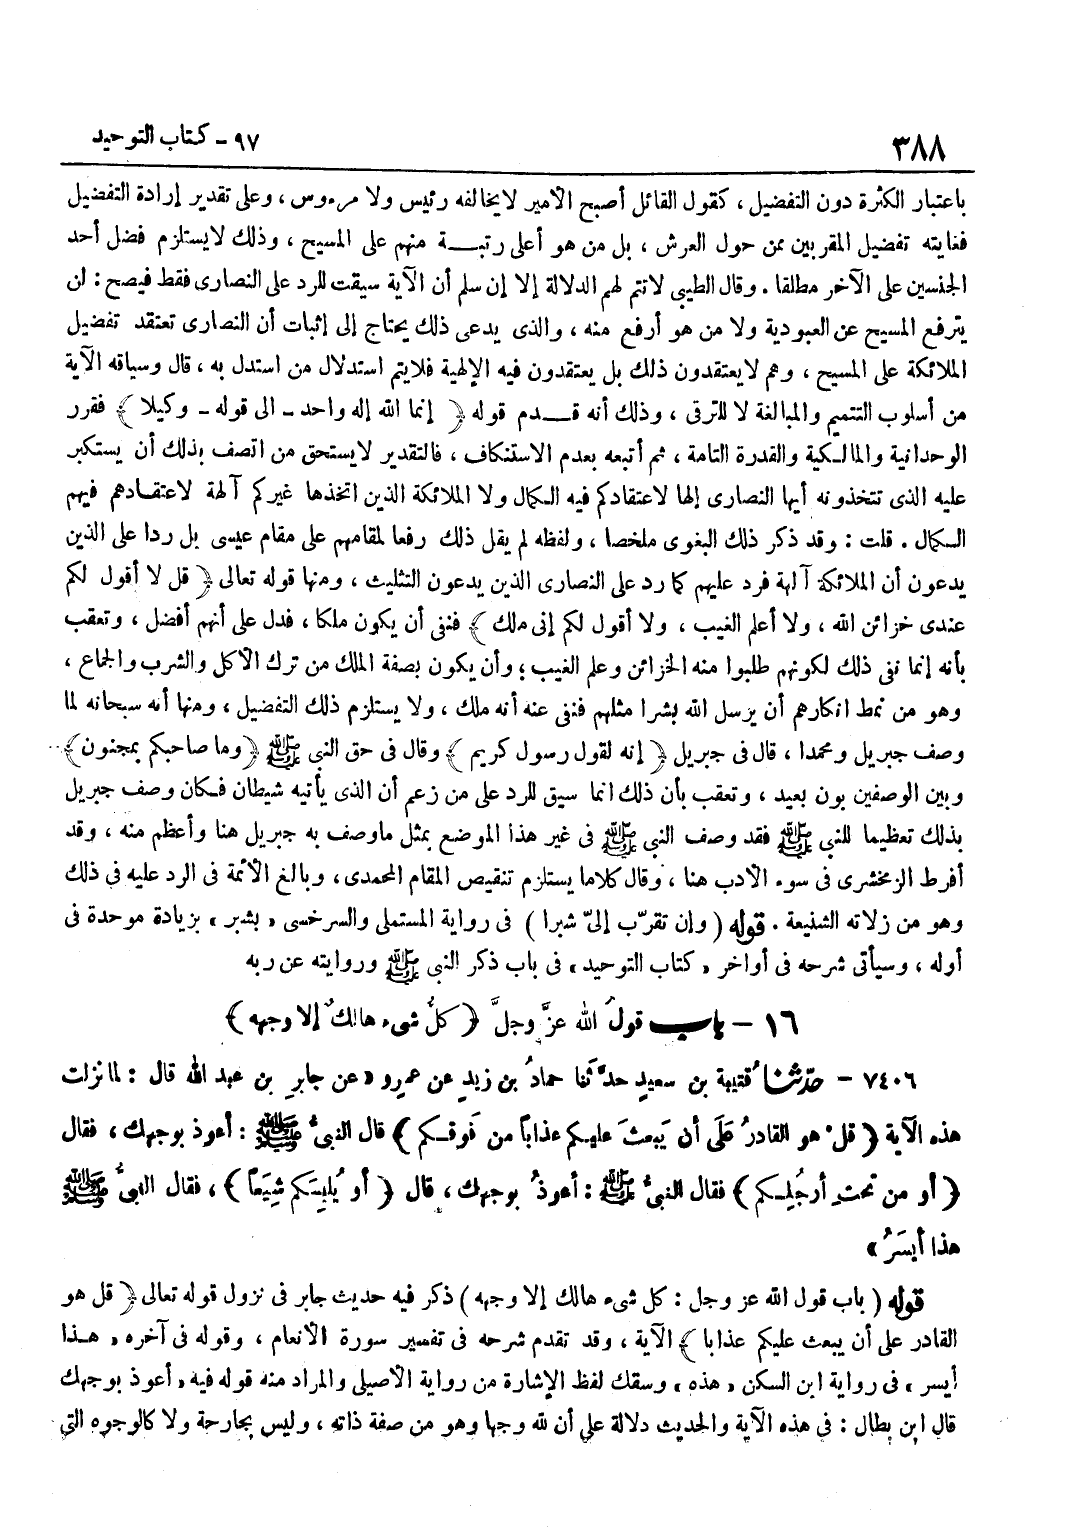 ٣٨٨
٩٧ - كتاب التوحيد
باعتبار الكثرة دون التفضيل ، كقول القائل أصبح الأمير لا يخالفه رئيس ولا مرءوس ، وعلى تقدير إرادة التفضيل
فغايته تفضيل المقربين ممن حول العرش ، بل من هو أعلى رتبة منهم على المسيح ، وذلك لا يستلزم فضل أحد
الجنسين على الآخر مطلقا . وقال الطيبى لا تتم لهم الدلالة إلا إن سلم أن الآية سيقت للرد على النصارى فقط فيصح : لن
يترفع المسيح عن العبودية ولا من هو أرفع منه ، والذى يدعى ذلك يحتاج إلى إثبات أن النصارى تعتقد تفضيل
الملائكة على المسيح ، وهم لا يعتقدون ذلك بل يعتقدون فيه الإلهية فلا يتم استدلال من استدل به ، قال وسياقه الآية
من أسلوب التتميم والمبالغة لا للترقى ، وذلك أنه قدم قوله ﴿ إنما الله إله واحد - الى قوله - وكيلا ﴾ فقرر
الوحدانية والمالكية والقدرة التامة ، ثم أتبعه بعدم الاستنكاف ، فالتقدير لا يستحق من اتصف بذلك أن يستكبر
عليه الذى تتخذونه أيها النصارى إلها لاعتقادكم فيه الكمال ولا الملائكة الذين اتخذها غيركم آلهة لاعتقادهم فيهم
الكمال . قلت : وقد ذكر ذلك البغوى ملخصا ، ولفظه لم يقل ذلك رفعا لمقامهم على مقام عيسى بل ردا على الذين
يدعون أن الملائكة آلهة فرد عليهم كما رد على النصارى الذين يدعون التثليث ، ومنها قوله تعالى ﴿ قل لا أقول لكم
عندى خزائن الله ، ولا أعلم الغيب ، ولا أقول لكم إنى ملك ﴾ فنفى أن يكون ملكا ، فدل على أنهم أفضل ، وتعقب
بأنه إنما نفى ذلك لكونهم طلبوا منه الخزائن وعلم الغيب ؛ وأن يكون بصفة الملك من ترك الأكل والشرب والجماع ،
وهو من نمط انكارهم أن يرسل الله بشرا مثلهم فنفى عنه أنه ملك ، ولا يستلزم ذلك التفضيل ، ومنها أنه سبحانه لما
وصف جبريل ومحمدا ، قال فى جبريل ﴿ إنه لقول رسول كريم ﴾ وقال فى حق النبى ﷺ ﴿ وما صاحبكم بمجنون ﴾
وبين الوصفين بون بعيد ، وتعقب بأن ذلك انما سيق للرد على من زعم أن الذى يأتيه شيطان فكان وصف جبريل
بذلك تعظيما للنبى ﷺ فقد وصف النبى ﷺ فى غير هذا الموضع بمثل ما وصف به جبريل هنا وأعظم منه ، وقد
أفرط الزمخشرى فى سوء الأدب هنا ، وقال كلاما يستلزم تنقيص المقام المحمدى ، وبالغ الأئمة فى الرد عليه فى ذلك
وهو من زلاته الشنيعة . قوله ( وإن تقرّب إلىّ شبرا ) فى رواية المستملى والسرخسى « بشبر » بزيادة موحدة فى
أوله ، وسيأتى شرحه فى أواخر « كتاب التوحيد » فى باب ذكر النبى ﷺ وروايته عن ربه
١٦ - باب قولُ الله عزَّ وجلَّ ﴿ كلُّ شىء هالكٌ إلا وجهه ﴾
٧٤٠٦ - حدّثنا قُتيبة بن سعيدٍ حدَّثنا حمادُ بن زيدٍ عن عمرٍو « عن جابرِ بن عبد الله قال : لما نزلت
هذه الآية ﴿ قلْ هو القادرُ عَلَى أن يَبعثَ عليكم عذاباً من فَوقكم ﴾ قال النبىُّ ﷺ : أعوذ بوجهك ، فقال
﴿ أو من تحتِ أرجُلِكم ﴾ فقال النبىُّ ﷺ : أعوذُ بوجهك ، قال ﴿ أو يُلبِسَكم شِيَعاً ﴾ ، فقال النبىُّ ﷺ
هذا أيسَرُ »
قوله ( باب قول الله عز وجل : كل شىء هالك إلا وجهه ) ذكر فيه حديث جابر فى نزول قوله تعالى ﴿ قل هو
القادر على أن يبعث عليكم عذابا ﴾ الآية ، وقد تقدم شرحه فى تفسير سورة الأنعام ، وقوله فى آخره « هذا
أيسر » فى رواية ابن السكن « هذه » وسقك لفظ الإشارة من رواية الأصيلى والمراد منه قوله فيه « أعوذ بوجهك
قال ابن بطال : فى هذه الآية والحديث دلالة على أن لله وجها وهو من صفة ذاته ، وليس بجارحة ولا كالوجوه التى